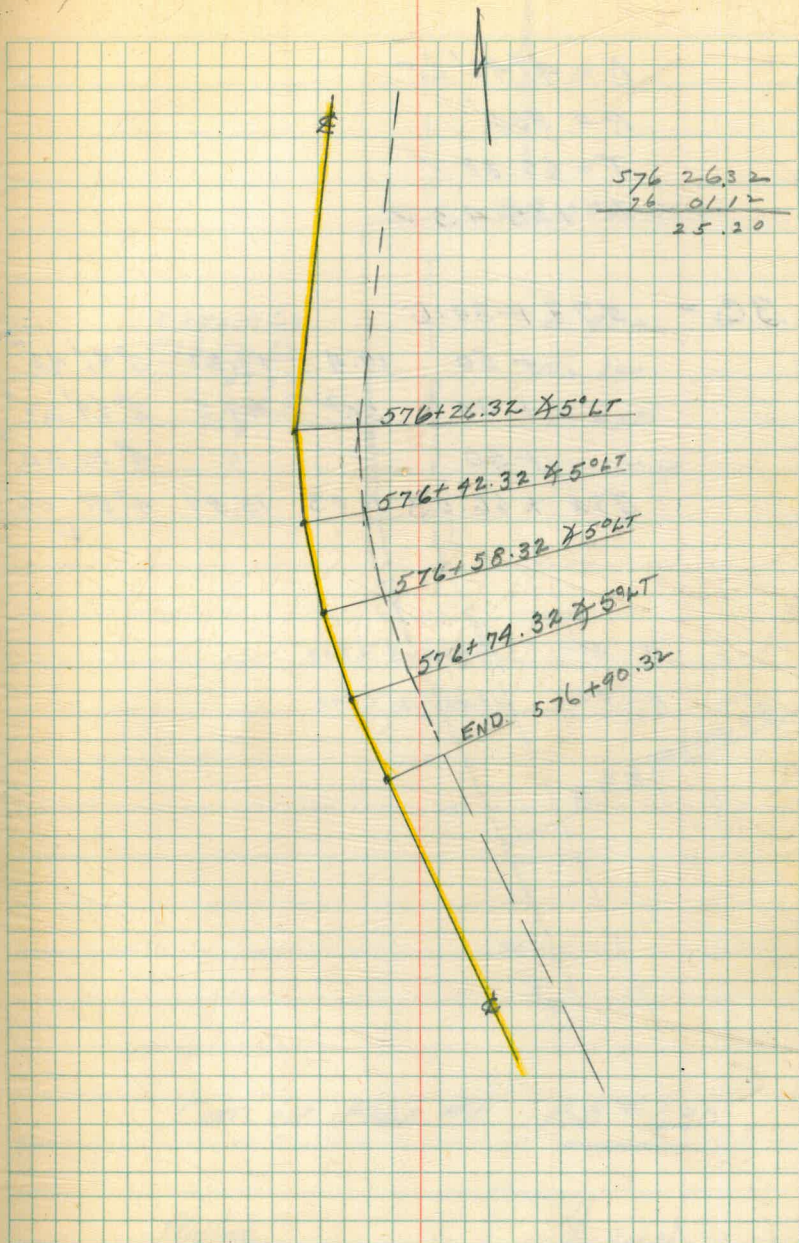 ℄
576 26.32
76 01.12
25.20
576+26.32 ∡5° LT
576+42.32 ∡5° LT
576+58.32 ∡5° LT
576+74.32 ∡5° LT
END 576+90.32
℄